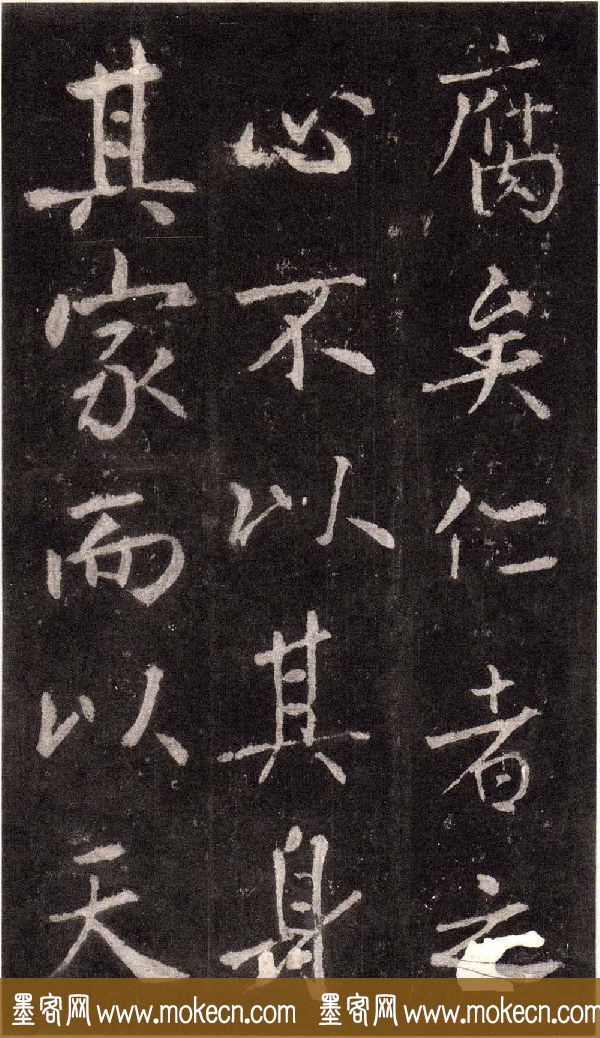 腐矣仁者之
心不以其身
其家而以天
墨客网 www.mokecn.com 墨客网 www.mokecn.com